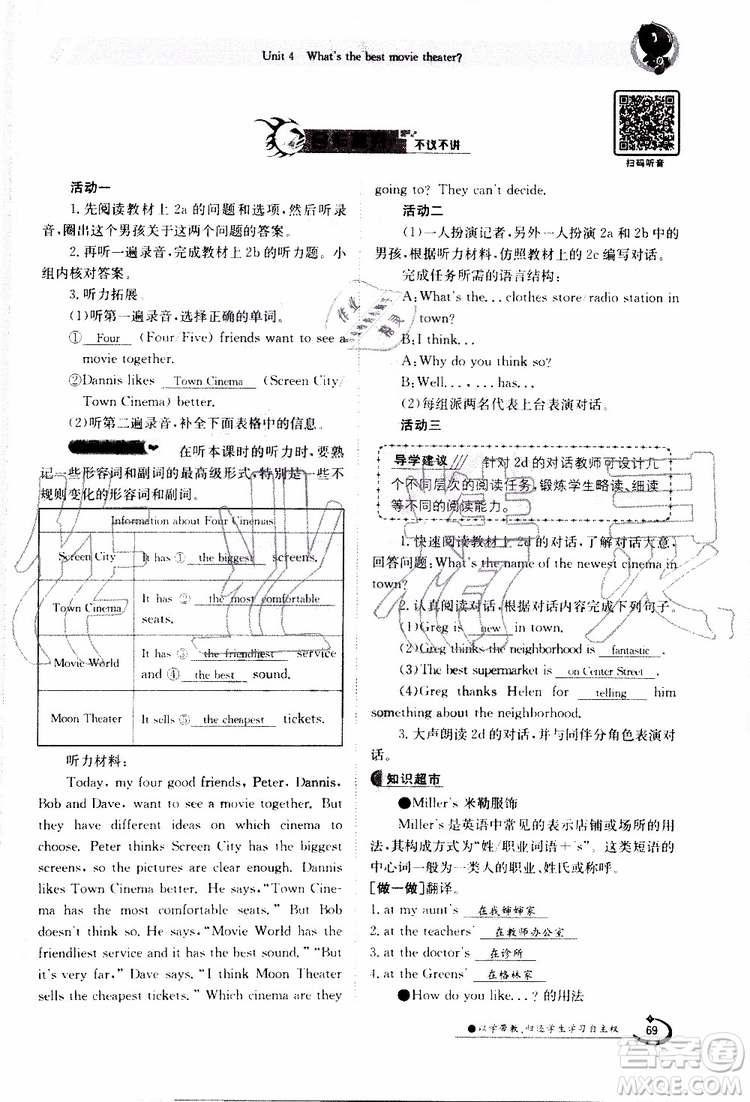 Unit 4 What's the best movie theater?
不议不讲
扫码听音
活动一
1. 先阅读教材上 2a 的问题和选项,然后听录
音,圈出这个男孩关于这两个问题的答案。
2. 再听一遍录音,完成教材上 2b 的听力题。小
组内核对答案。
3. 听力拓展。
(1)听第一遍录音,选择正确的单词。
① Four (Four/Five) friends want to see a
movie together.
②Dannis likes Town Cinema (Screen City/
Town Cinema) better.
(2)听第二遍录音,补全下面表格中的信息。
在听本课时的听力时,要熟
记一些形容词和副词的最高级形式,特别是一些不
规则变化的形容词和副词。
Information about Four Cinemas
Screen City It has ① the biggest screens.
Town Cinema It has ② the most comfortable
seats.
Movie World It has ③ the friendliest service
and ④ the best sound.
Moon Theater It sells ⑤ the cheapest tickets.
听力材料:
Today, my four good friends, Peter, Dannis,
Bob and Dave, want to see a movie together. But
they have different ideas on which cinema to
choose. Peter thinks Screen City has the biggest
screens, so the pictures are clear enough. Dannis
likes Town Cinema better. He says,"Town Cine-
ma has the most comfortable seats." But Bob
doesn't think so. He says, "Movie World has the
friendliest service and the best sound." "But
it's very far," Dave says. "I think Moon Theater
sells the cheapest tickets." Which cinema are they
going to? They can't decide.
活动二
(1)一人扮演记者,另外一人扮演 2a 和 2b 中的
男孩,根据听力材料,仿照教材上的 2c 编写对话。
完成任务所需的语言结构:
A:What's the... clothes store/radio station in
town?
B:I think...
A:Why do you think so?
B:Well...,... has...
(2)每组派两名代表上台表演对话。
活动三
导学建议 针对 2d 的对话教师可设计几
个不同层次的阅读任务,锻炼学生略读、细读
等不同的阅读能力。
1. 快速阅读教材上 2d 的对话,了解对话大意,
回答问题:What's the name of the newest cinema in
town?
2. 认真阅读对话,根据对话内容完成下列句子。
(1)Greg is new in town.
(2)Greg thinks the neighborhood is fantastic .
(3)The best supermarket is on Center Street .
(4)Greg thanks Helen for telling him
something about the neighborhood.
3. 大声朗读 2d 的对话,并与同伴分角色表演对
话。
知识超市
●Miller's 米勒服饰
Miller's 是英语中常见的表示店铺或场所的用
法,其构成方式为“姓/职业词语+'s”。这类短语的
中心词一般为一类人的职业、姓氏或称呼。
[做一做]翻译。
1. at my aunt's 在我婶婶家
2. at the teachers' 在教师办公室
3. at the doctor's 在诊所
4. at the Greens' 在格林家
●How do you like...? 的用法
●以学带教,归还学生学习自主权 69
作业精灵
作业精灵
答案圈
MXQE.COM